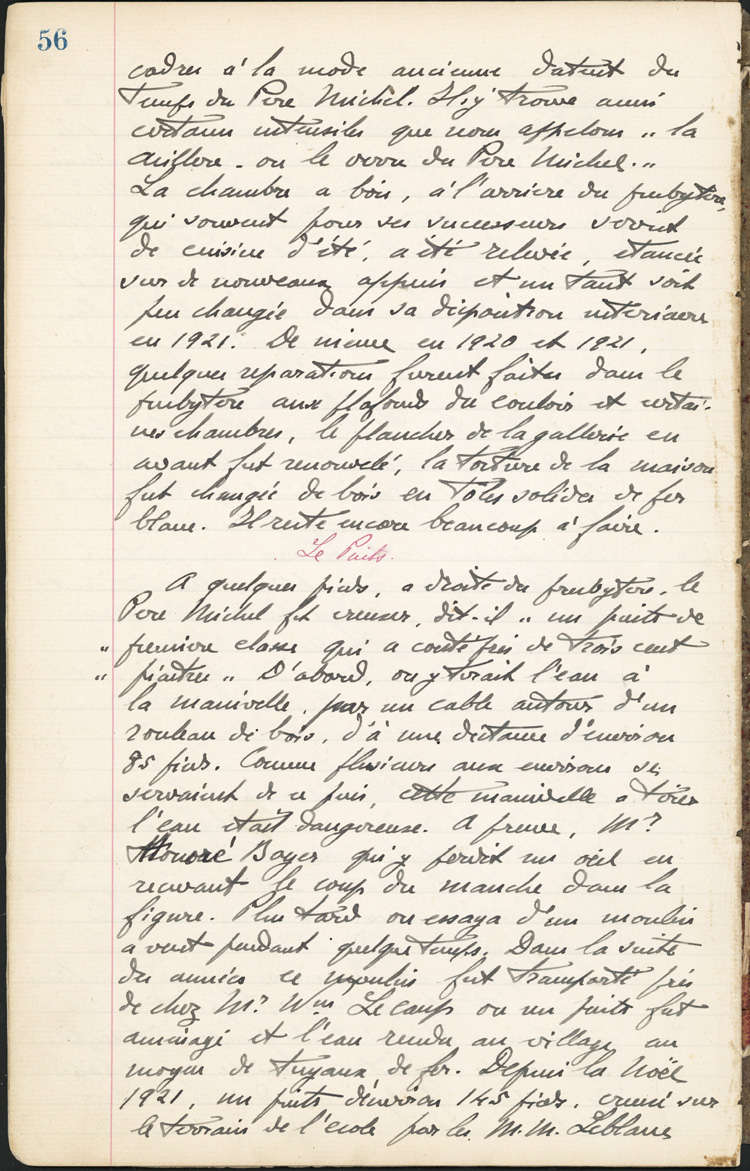 56
cadres à la mode ancienne datent du
temps du Pere Michel. Il y trouve aussi
certains utensiles que nous appelons „ la
 - ou le verre du Pere Michel. "
La chambre a bois, à l'arriere du presbytere,
qui souvent pour ses successeurs servit
de cuisine d'été, a été relevée, etancée
sur de nouveaux appuis et un tant soit
peu changée dans sa disposition interieure
en 1921. De meme en 1920 et 1921,
quelques reparations furent faites dans le
presbytere aux plafonds du couloir et certai-
nes chambres, le plancher de la gallerie en
avant fut renouvelé, la toiture de la maison
fut changée de bois en tôles solides de fer
blanc. Il reste encore beaucoup à faire.
Le Puits.
A quelques pieds, a droite du presbytere, le
Pere Michel fit creuser, dit-il „ un puits de
„ premiere classe qui a couté près de trois cent
„ piastres „ D'abord, on y tirait l'eau à
la manivelle, par un cable autour d'un
rouleau de bois, d'à une distance d'environ
85 pieds. Comme plusieurs aux environs se
servaient de ce puis, cette manivelle a tirer
l'eau etait dangereuse. A preuve, Mr
Honoré Boyer qui y perdit un oeil en
recevant le coup du manche dans la
figure. Plus tard on essaya d'un moulin
a vent pendant quelque temps. Dans la suite
des années ce moulin fut transporté près
de chez Mr Wm Lecamp ou un puits fut
amenagé et l'eau rendu au village au
moyen de tuyaux de fer. Depuis la Noël
1921, un puits d'environ 145 pieds, creusé sur
le terrain de l'école par les M.M. Leblanc